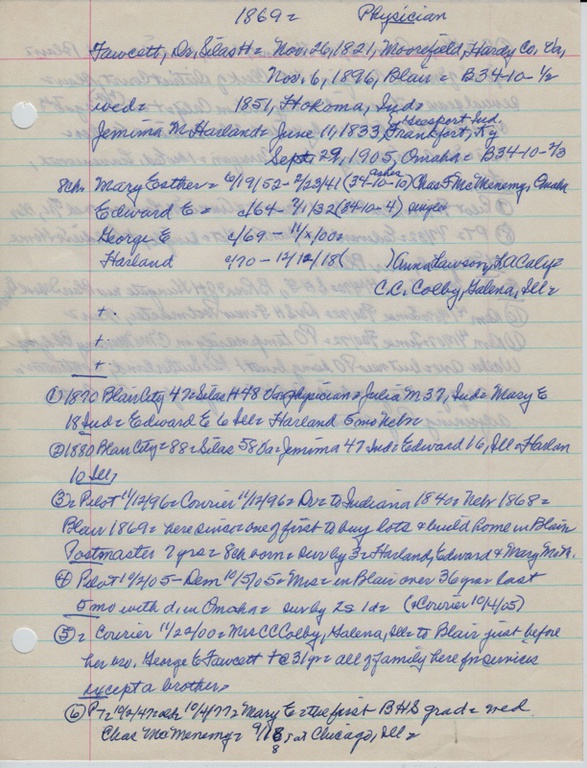 1869= Physician
Fawcett, Dr. Silas H= Nov. 26, 1821, Moorefield, Hardy Co, Va,
Nov. 6, 1896, Blair= B34-10-1/2
wed= 1851, Hokoma, Ind=
Logansport Ind.
Jemima M Harland= June 11, 1833, Frankfort, Ky
Sept. 29, 1905, Omaha= B34-10-2/3
8ch= Mary Esther= 6/19/52-2/23/41 (34-10-10) ashes Chas F McMenemy, Omaha
Edward E= c/64- 7/1/32 (34-10-4)
George E c/69 - 11/x/00=
Harland c/70 - 12/12/18 ( ) Anna Lawson, LA Calif=
C.C. Colby, Galena, Ill=
+.
+.
+.
① 1870 Blair City 47= Silas H 48 Va= Physician= Julia M 37, Ind= Mary E
18 Ind= Edward E 6 Ill= Harland 5mo Nebr=
② 1880 Blair City= 88= Silas 58 Va= Jemima 47 Ind= Edward 16, Ill= Harlan
10 Ill,
③= Pilot 11/12/96= Courier 11/12/96= Dr= to Indiana 1840= Nebr 1868=
Blair 1869= here since= one of first to buy lots & build home in Blair
Postmaster 7 yrs= 8ch born= sur by 3= Harland, Edward & Mary McM.
④ Pilot 10/2/05- Dem 10/5/05= Mrs= in Blair over 36 yrs= last
5mo with d, in Omaha= sur by 2s 1d= (+Courier 10/4/05)
⑤= Courier 11/22/00= Mrs CC Colby, Galena, Ill= to Blair just before
her bro. George E Fawcett + @ 31 yr= all of family here for services
except a brother=
⑥ PT= 10/2/47= 10/4/77= Mary E= the first BHS grad= wed
Chas McMenemy= 9/18 8, at Chicago, Ill=